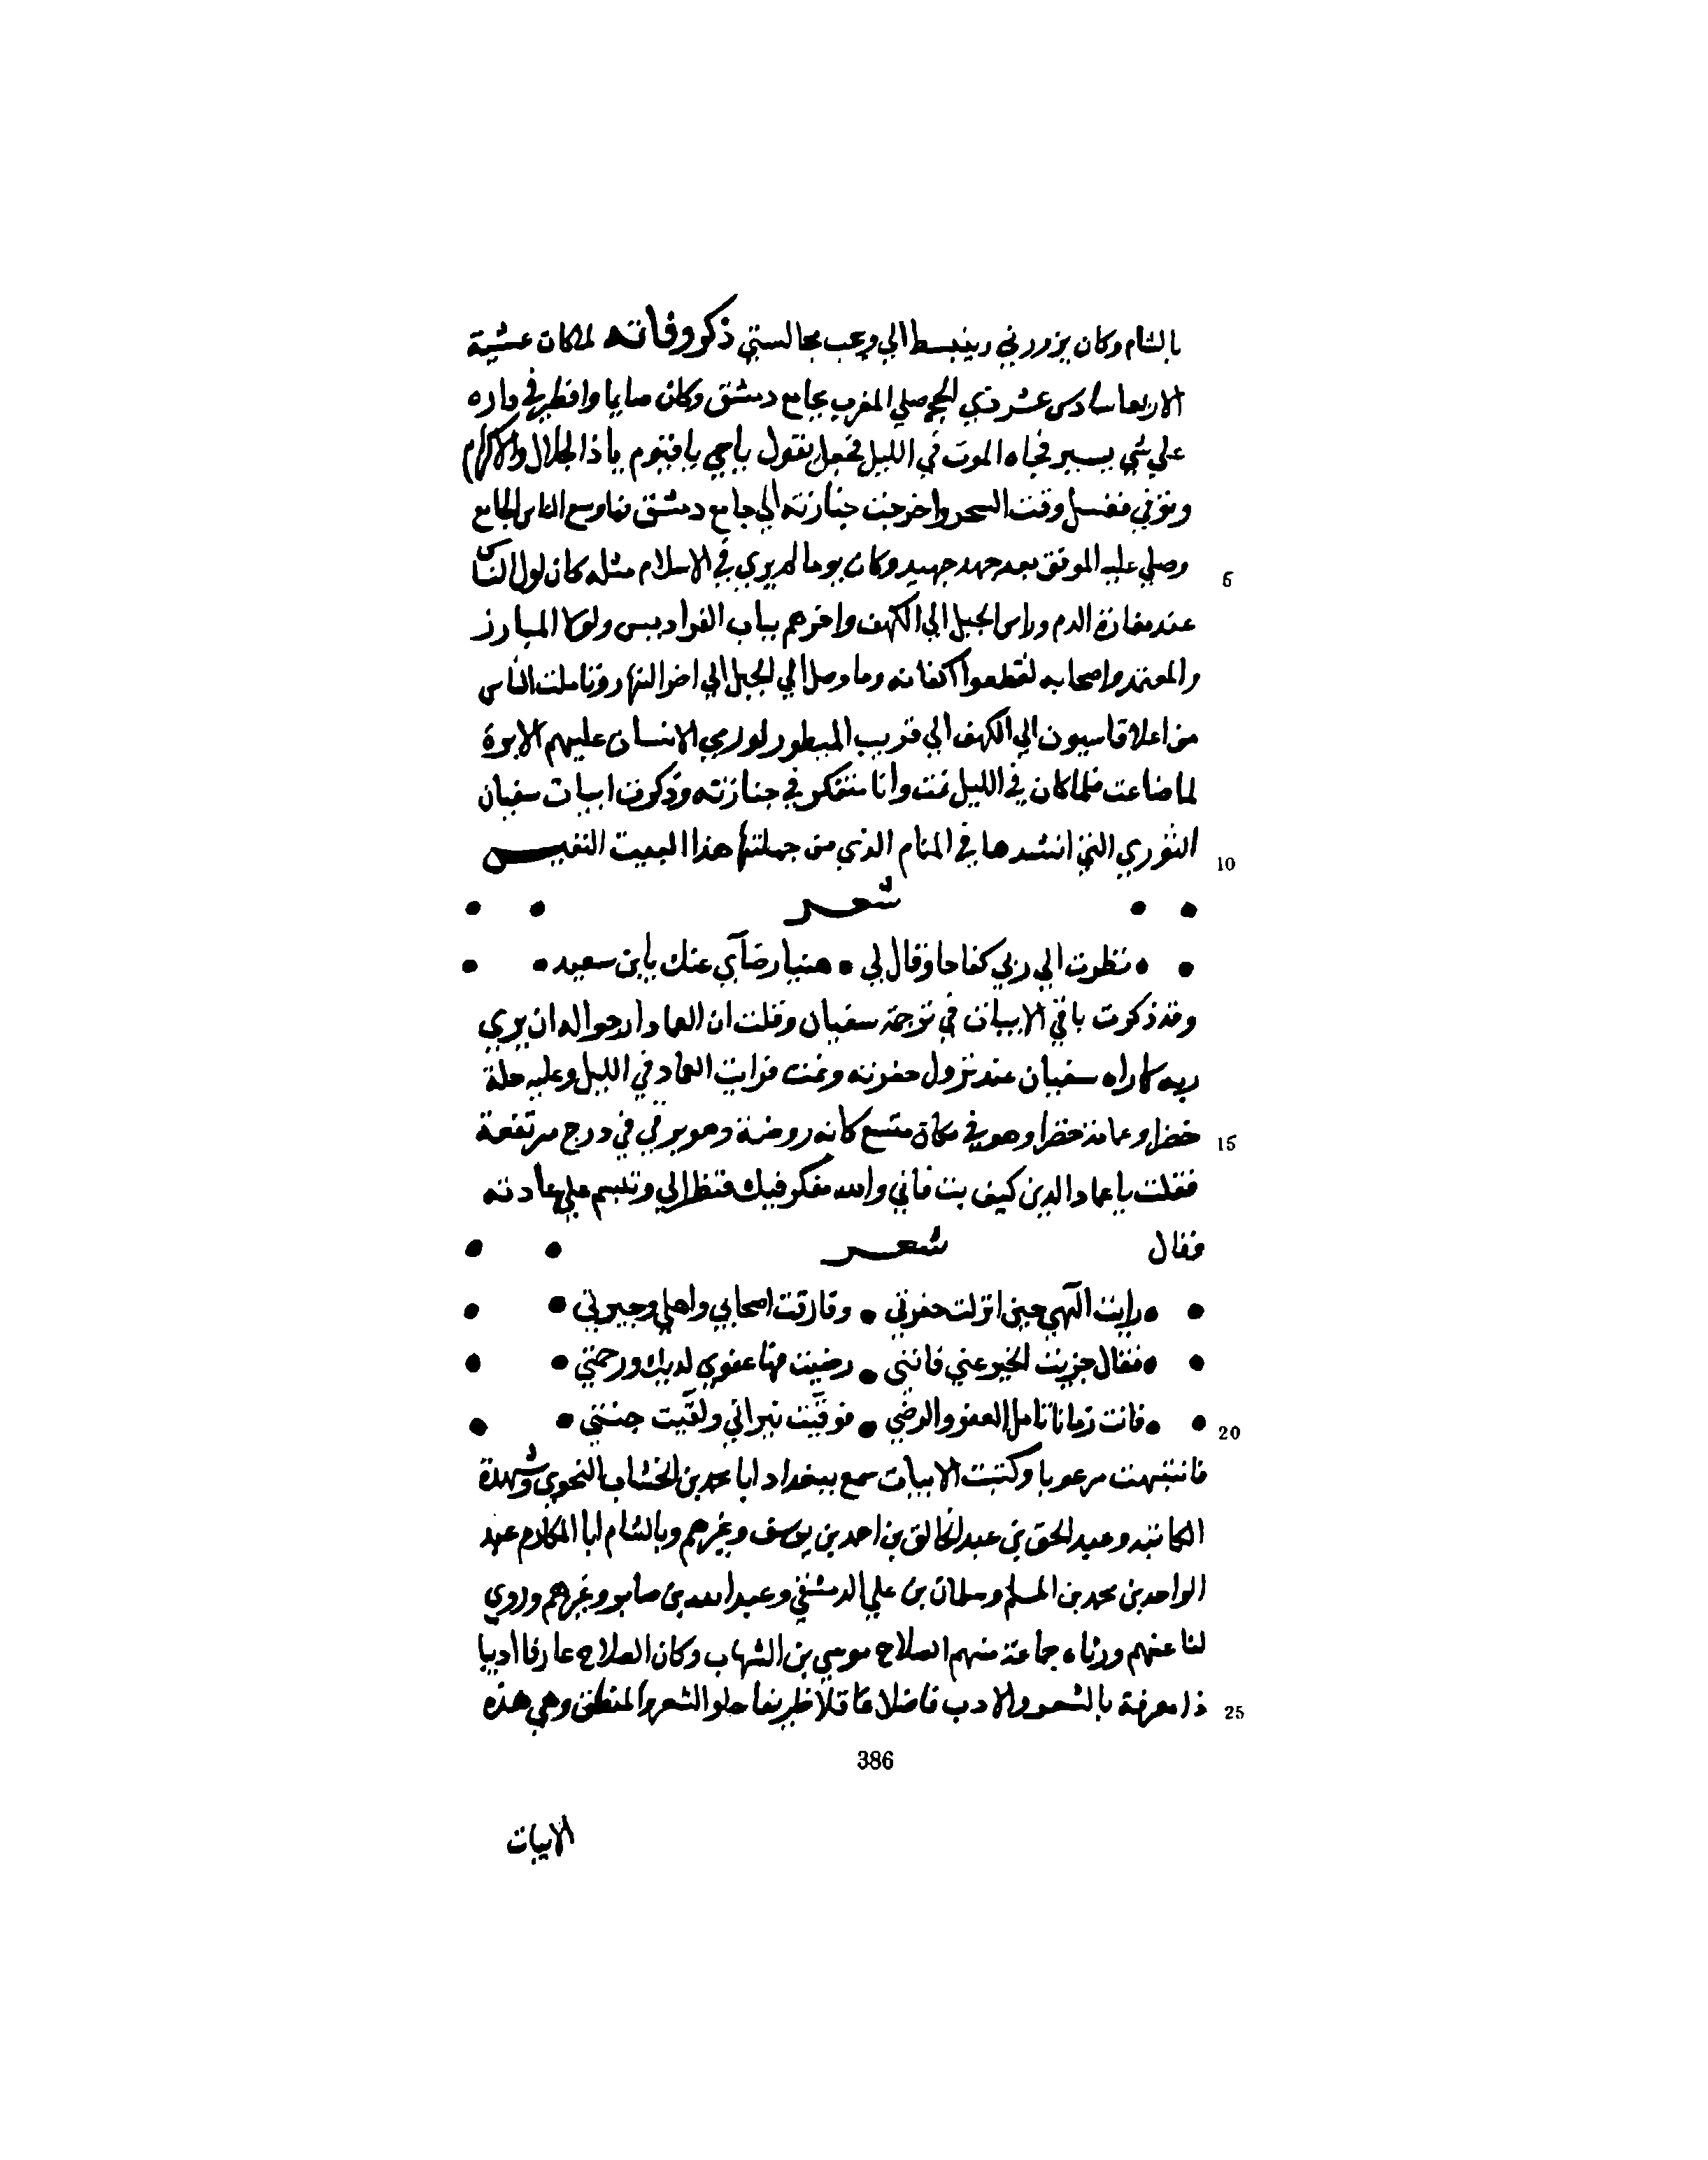 بالشام وكان يزورني وينبسط الي ويحب مجالستي ذكر وفاته لما كان عشية
الاربعا سادس عشر ذي الحجة صلي المغرب بجامع دمشق وكان صايما وافطر في داره
علي شي يسير فجاه الموت في الليل فجعل يقول ياحي ياقيوم ياذا الجلال والاكرام
وتوفي فغسل وقت السحر واخرجت جنازته الي جامع دمشق فما وسع الناس الجامع
وصلي عليه الموفق بعد جهد جهيد وكان يوما لم يري في الاسلام مثله كان اول الناس
عند مغارة الدم وراس الجبل الي الكهف واخرهم بباب الفراديس ولولا المبارز
والمعتمد واصحابه لقطعوا اكفانه وما وصل الي الجبل الي اخر النهار وتاملت الناس
من اعلا قاسيون الي الكهف الي قريب الميطور لو رمي الانسان عليهم الابرة
لما ضاعت فلما كان في الليل نمت وانا متفكر في جنازته وذكرت ابيات سفيان
الثوري التي انشدها في المنام الذي من جملتها هذا البيت النفيس
شعر
نظرت الي ربي كفاحا وقال لي • هنيا رضآي عنك يا بن سعيد •
وقد ذكرت باقي الابيات في ترجمة سفيان وقلت ان العماد ارجوا له ان يري
ربه كما راه سفيان عند نزول حفرته ونمت فرايت العماد في الليل وعليه حلة
خضرا وعمامة خضرا وهو في مكان متسع كانه روضة وهو يرقي في درج مرتفعة
فقلت يا عماد الدين كيف بت فاني والله مفكر فيك فنظر الي وتبسم علي عادته
فقال شعر
• رايت الآهي حين انزلت حفرتي • وفارقت اصحابي واهلي وجيرتي •
• فقال جزيت الخير عني فانني • رضيت فها عفوي لديك ورحمتي •
• فانت زمانا تامل العفو والرضي • فوقيت نيراني ولقيت جنتي •
فانتبهت مرعوبا وكتبت الابيات سمع ببغداد ابا محمد بن الخشاب النحوي وشهدة
الكاتبه وعبد الحق بن عبد الخالق بن احمد بن يوسف وغيرهم وبالشام ابا المكارم عبد
الواحد بن محمد بن المسلم وسلمان بن علي الدمشقي وعبد الله بن صابر وغيرهم وروي
لنا عنهم ورثاه جماعة منهم الصلاح موسي بن الشهاب وكان الصلاح عارفا اديبا
ذا معرفة بالشعر والادب فاضلا عاقلا ظريفا حلو الشعر والمنطق وهي هذه
5
10
15
20
25
386
الابيات